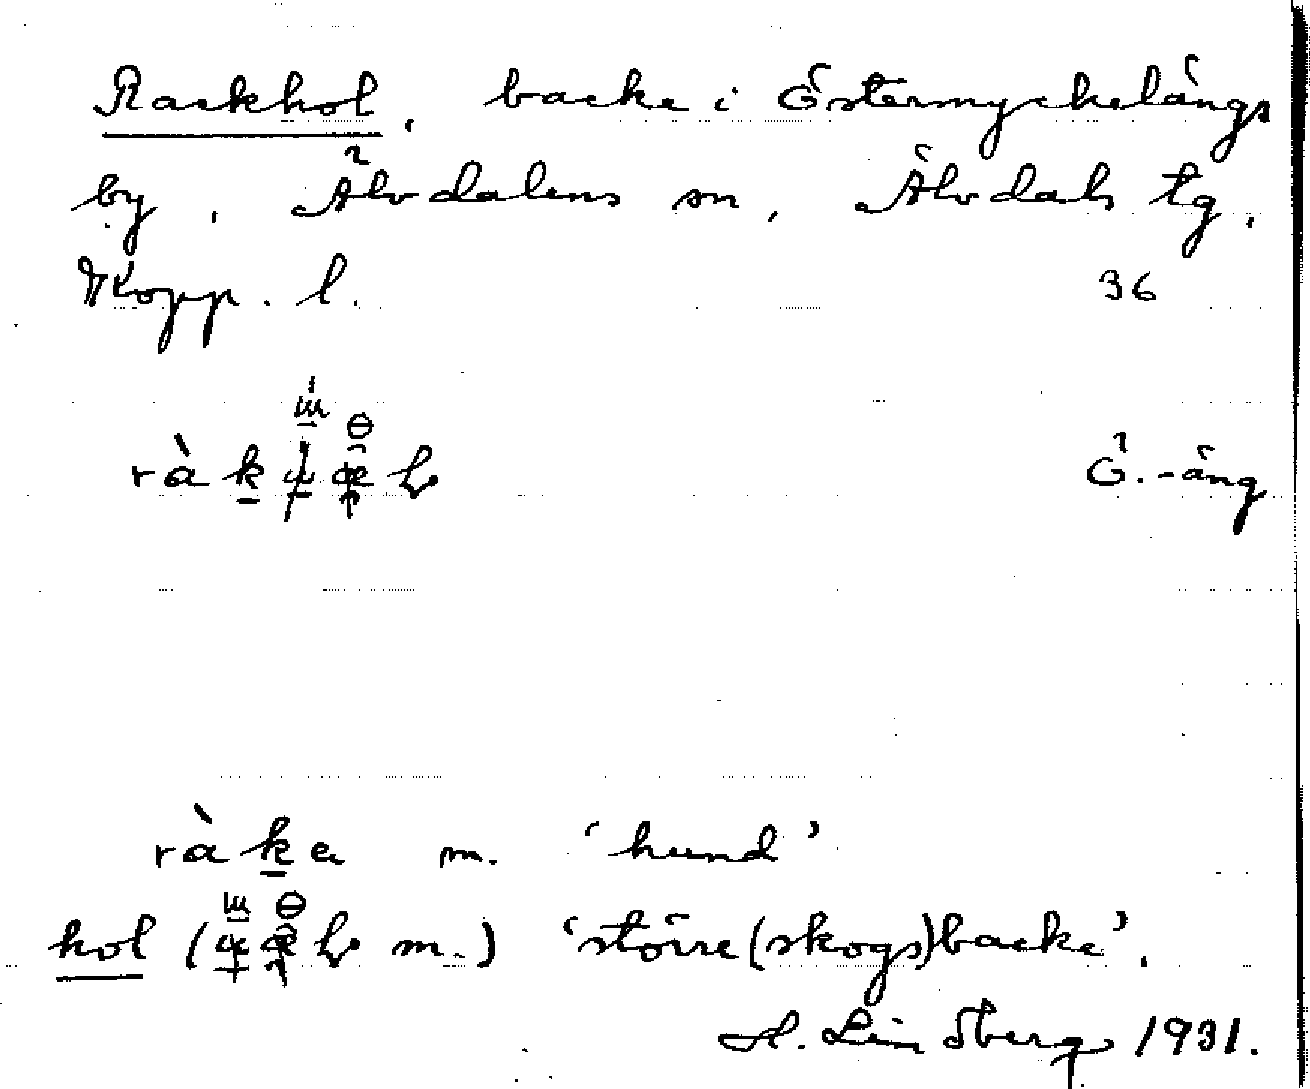 Rackhol, backe i Östermyckelängs
by, Älvdalens sn, Älvdals tg,
Kopp. l. 36
Ö.-äng
ràka m. 'hund'
hol ( m.) 'större (skogs)backe'.
Lindberg 1931.